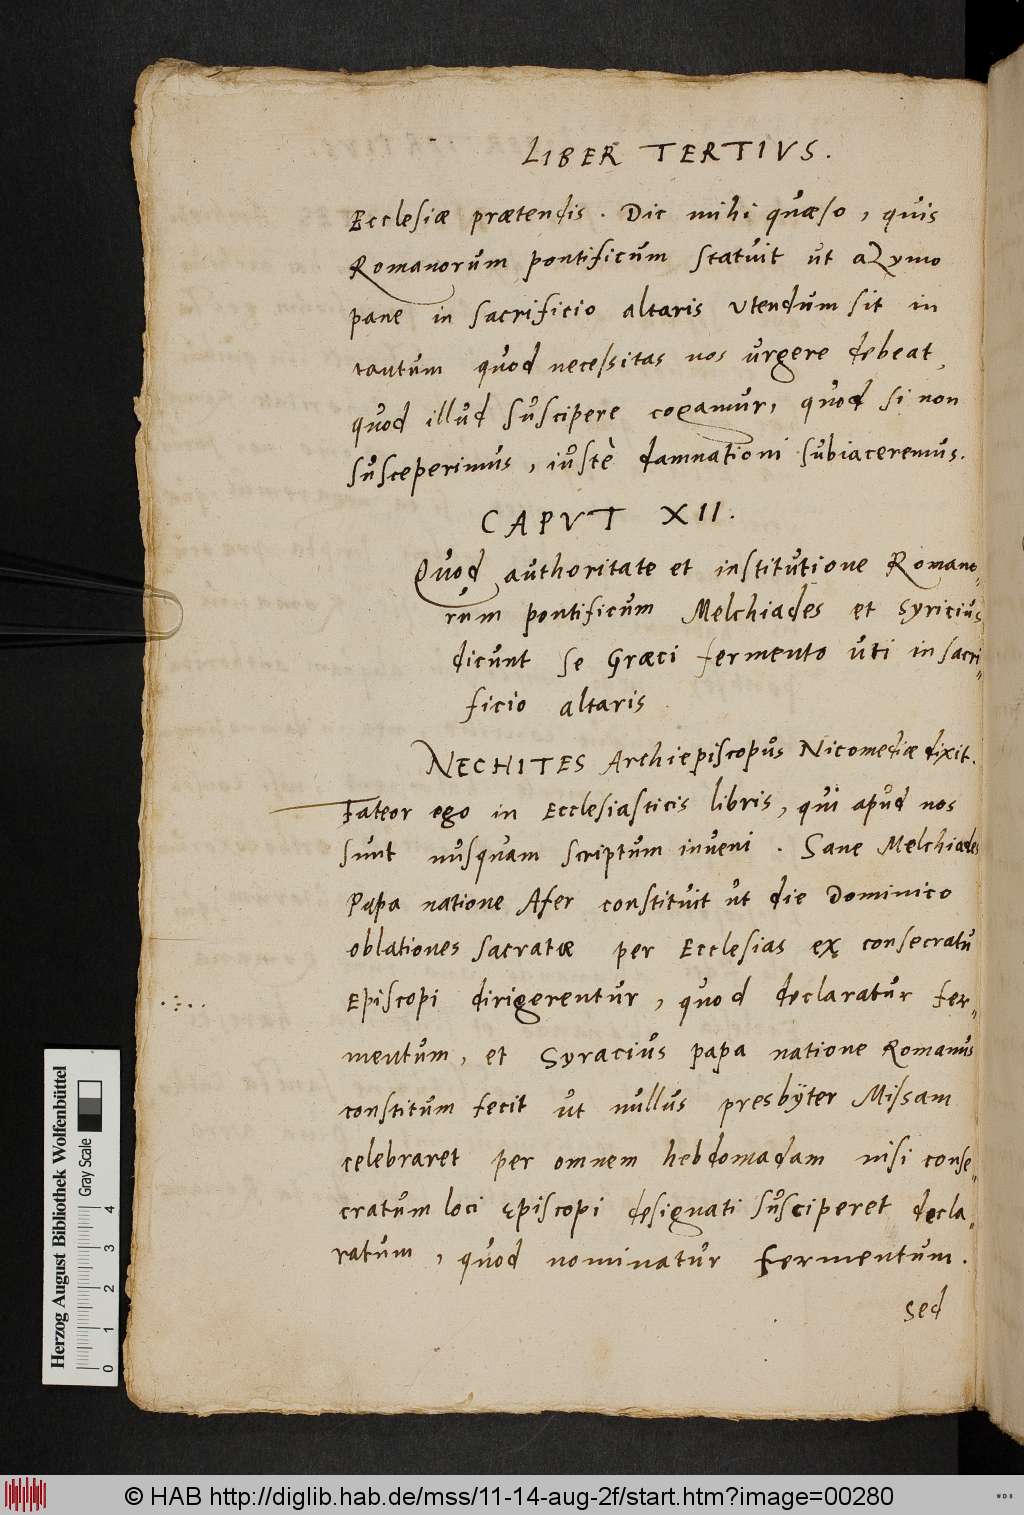 LIBER TERTIVS.
Ecclesiæ prætendis. Dic mihi quæso, quis
Romanorum pontificum statuit ut aZymo
pane in sacrificio altaris utendum sit in
tantum quod necessitas nos urgere debeat,
quod illud suscipere cogamur, quod si non
susceperimus, iustè damnationi subiaceremus.
CAPVT XII.
Quod authoritate et institutione Romano-
rum pontificum Melchiades et Syricius
dicunt se Græci fermento uti in sacri-
ficio altaris
NECHITES Archiepiscopus Nicomediæ dixit.
Fateor ego in Ecclesiasticis libris, qui apud nos
sunt nusquam scriptum inueni. Sane Melchiades
Papa natione Afer constituit ut die Dominico
oblationes sacratæ per Ecclesias ex consecratu
Episcopi dirigerentur, quod declaratur fer-
mentum, et Syracius papa natione Romanus
constitum fecit ut nullus presbÿter Missam
celebraret per omnem hebdomadam nisi conse-
cratum loci Episcopi designati susciperet decla-
ratum, quod nominatur fermentum.
sed
Herzog August Bibliothek Wolfenbüttel
Gray Scale
0 1 2 3 4
© HAB http://diglib.hab.de/mss/11-14-aug-2f/start.htm?image=00280